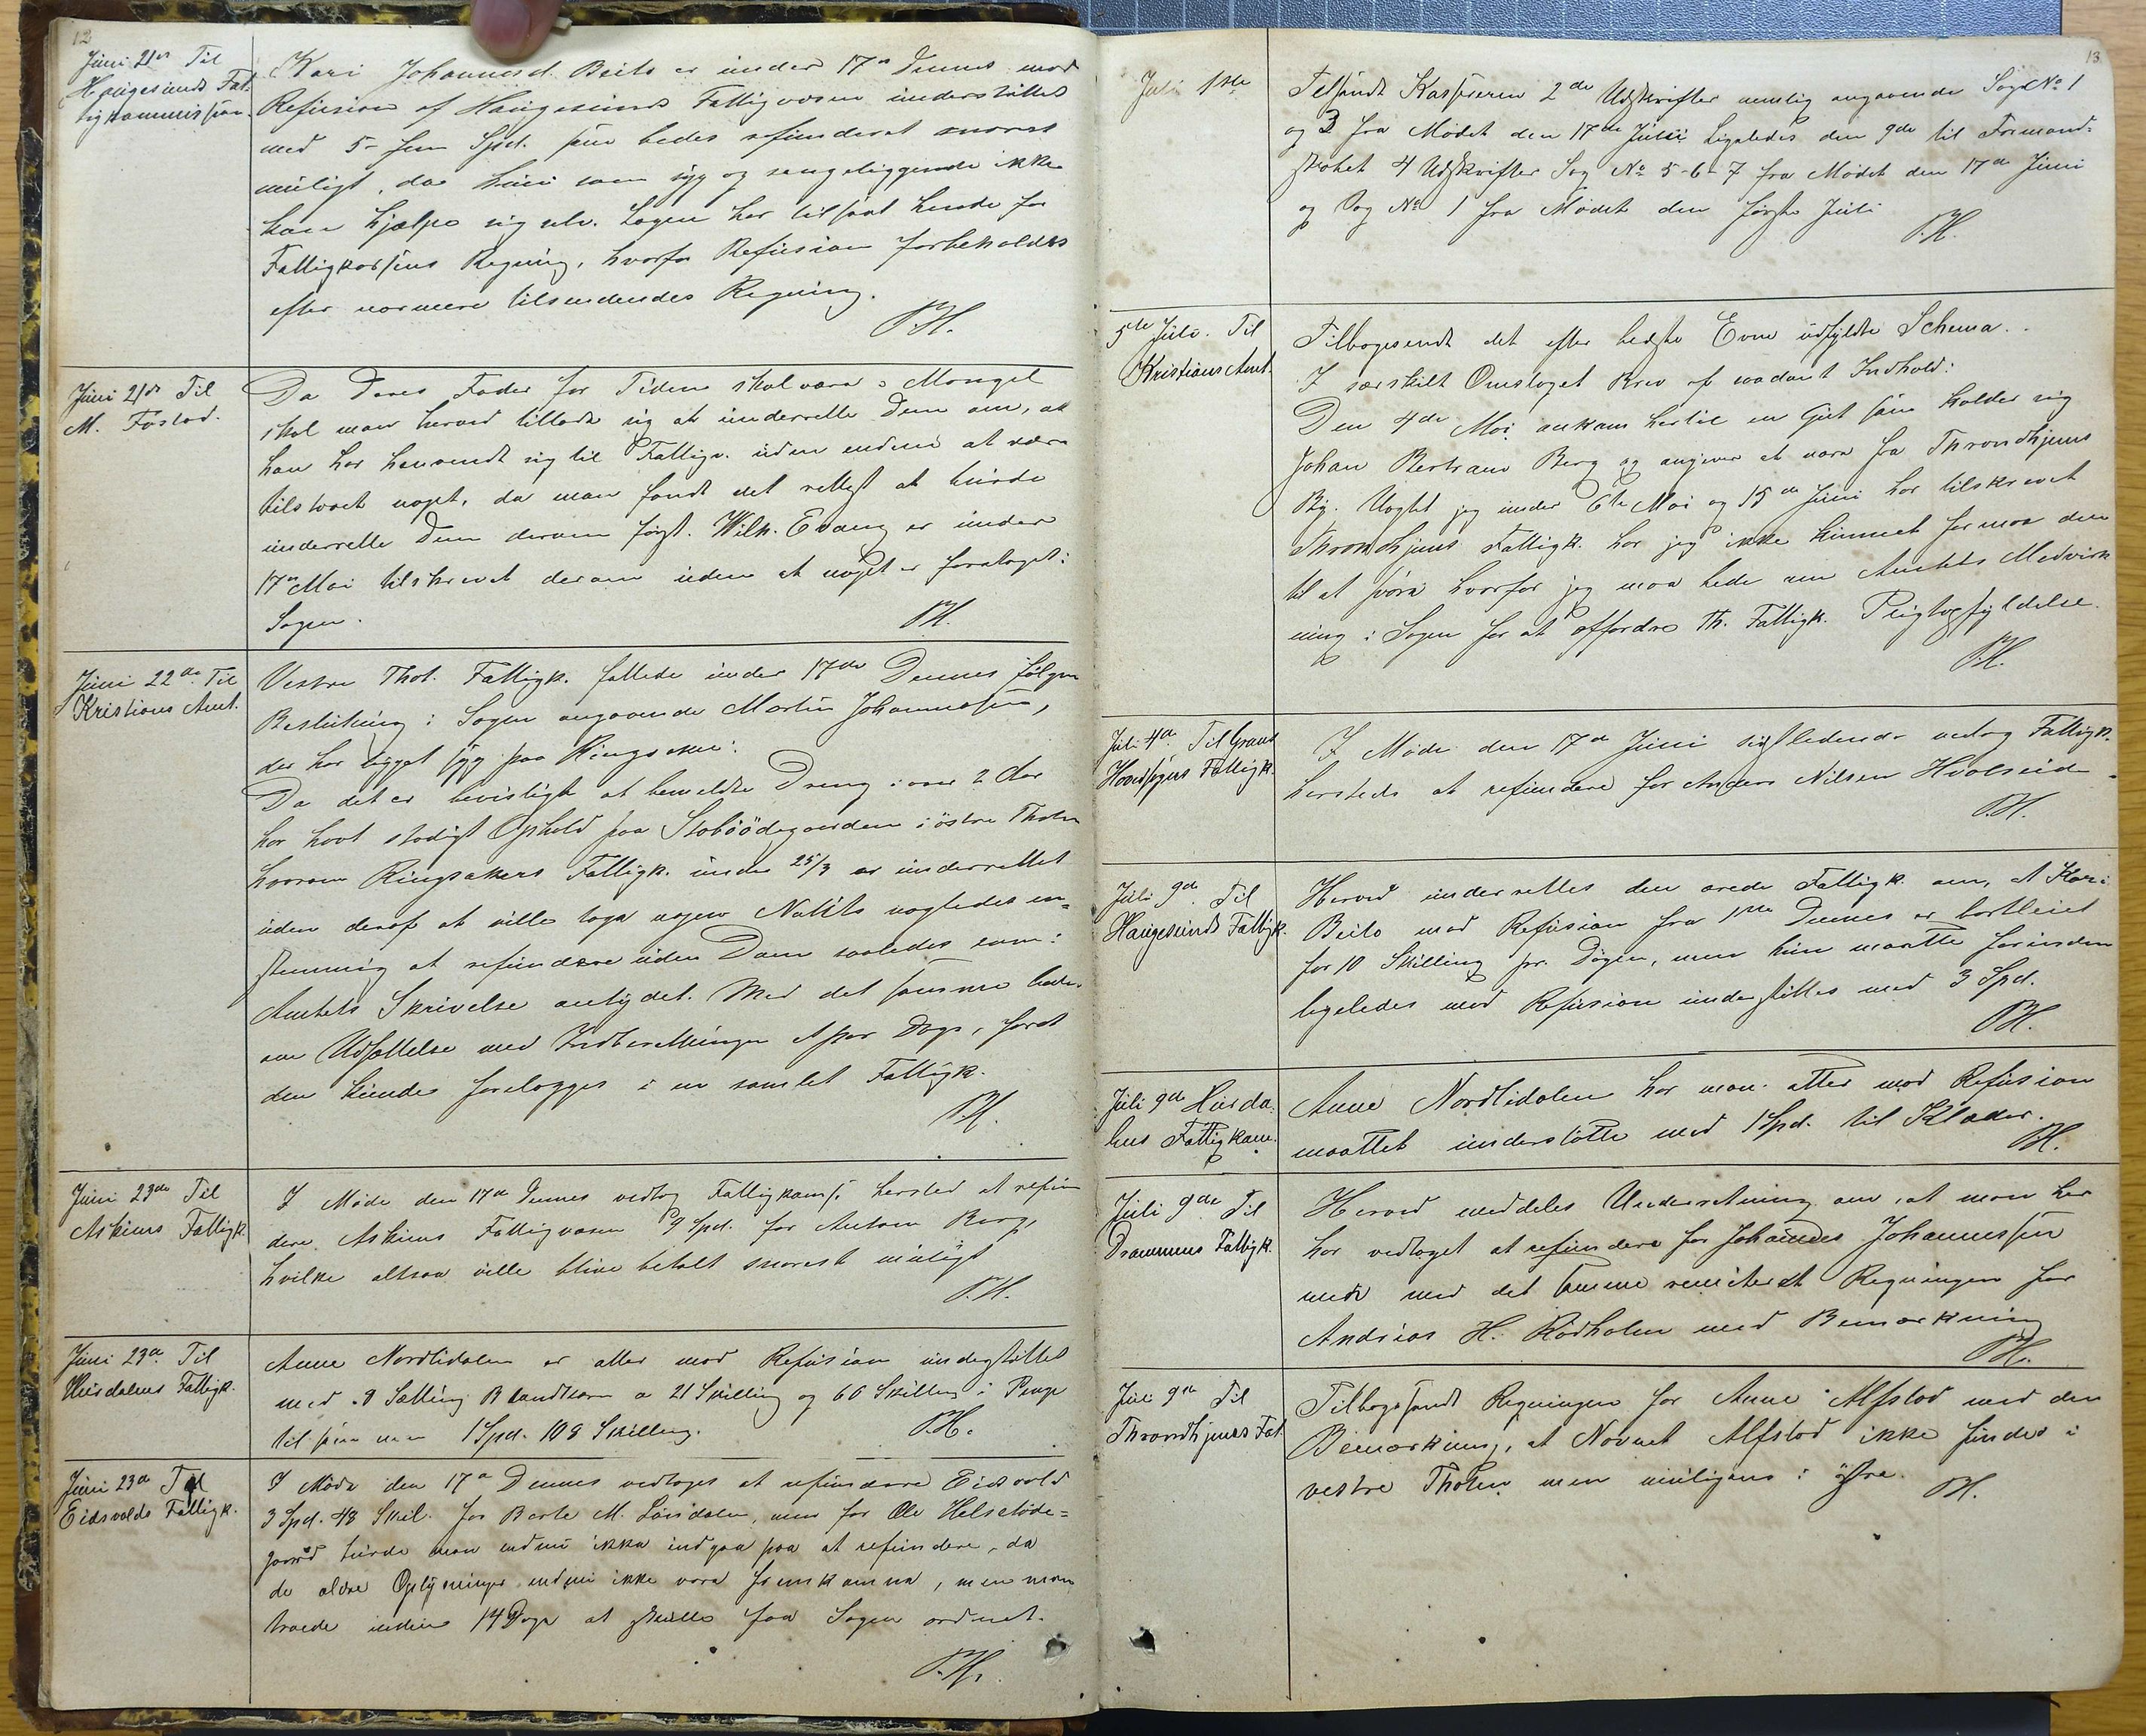 12
Juni 21de Til
Haugesunds Fat-
tigkommission.
Kari Johannesd. Beito er under 17de Dennes mod
Refusion af Haugesunds Fattigvæsen understøttet
med 5- fem Spd. som bedes refunderet snarest
muligt, da hun som syg og sengeliggende ikke
kan hjælpe sig selv. Lægen har tilsaat hende for
Fattigkassens Regning, hvorfor Refusion forbeholdes
efter nærmere tilsendendes Regning.
P.H.
Juni 21de Til
M. Fostad.
Da Deres Fader for Tiden skal være i Mangel
skal man herved tillade sig at underrette Dem om, at
han har henvendt sig til Fattigv. uden endnu at være
tilstaaet noget, da man fandt det rettest at burde
underrette Dem derom først. Wilh. Evang er under
17de Mai tilskrevet derom uden at noget er foretaget i
Sagen.
P.H.
Juni 22de Til
Kristians Amt.
Vestre Thot. Fattigk. fattede under 17de Dennes følgen
Beslutning i Sagen angaaende Martin Johannessen,
der har ligget syg paa Ringsaker:
Da det er bevisligt at bemeldte Dreng i over 2 Aar
har havt stadigt Ophold paa Stabøødegaarden i østre Thoten
hvorom Ringsakers Fattigk. under 25/3 er underrettet
uden deraf at ville tage nogen Notits negtedes en=
stemmig at refundere uden Dom saaledes som i
Amtets Skrivelse antydet. Med det samme bedes
om Udsættelse med Indberetningen et Par Dage, førat
den kunde forelægges i en samlet Fattigk.
P.H.
Juni 23de Til
Askims Fattigk.
I Møde den 17de Dennes vedtog Fattigkoms. hersted at refun
dere Askims Fattigvæsen 9 Spd. for Anton Berg,
hvilke altsaa ville blive betalt snarest muligt
P.H.
Juni 23de Til
Hurdalens Fattigk.
Anne Nordlidalen er atter mod Refusion understøttet
med 8 Sætting Blandkorn a 21 Skilling og 60 Skilling i Penge
til sammen 1 Spd. 108 Skilling.
P.H.
Juni 23de Til
Eidsvolds Fattigk.
I Møde den 17de Dennes vedtoges at refundere Eidsvold
3 Spd. 48 Skil. for Berte M. Lørdalen, men for Ole Helsetøde=
gaard turde man endnu ikke indgaa paa at refundere, da
de ældre Oplysninger endnu ikke vare fremkomne, men man
troede inden 14 Dage at skulle faa Sagen ordnet.
P.H.
13
Juli 1ste
Tilsendt Kassereren 2de Udskrifter nemlig angaaende Sag No 1
og 3 fra Mødet den 17de Juni Ligeledes den 9de til Formand-
skabet 4 Udskrifter Sag No 5-6-7 fra Mødet den 17de Juni
og Sag No 1 fra Mødet den første Juli
P.H.
5te Juli. Til
Kristians Amt.
Tilbagesendt det efter bedste Evne udfyldte Schema.
I særskilt Omslaget Brev af saadant Indhold:
Den 4de Mai ankom hertil en Gut som kalder sig
Johan Bertram Berg og angiver at være fra Throndhjems
By. Uagtet jeg under 6te Mai og 15de Juni har tilskrevet
Throndhjems Fattigk. har jeg ikke kunnet formaa den
til at svare hvorfor jeg maa bede om Amtets Medvirk
ning i Sagen for at opfordre Th. Fattigk. Pligtopfyldelse.
P.H.
Juli 4de Til Grans
Hovedsogns Fattigk.
I Møde den 17de Juni sidstledende vedtog Fattigk.
hersteds at refundere for Anders Nilsen Hvalseide
P.H.
Juli 9de Til
Haugesunds Fattigk.
Herved underrettes den ærede Fattigk. om, at Kari
Beito mod Refusion fra 1ste Dennes er bortleiet
for 10 Skilling pr. Døgn, men hun maatte forinden
ligeledes mod Refusion understøttes med 3 Spd.
P.H.
Juli 9de Hurda
lens Fattigkom.
Anne Nordlidalen har man atter mod Refusion
maattet understøtte med 1 Spd. til Klæder.
P.H.
Juli 9de Til
Drammens Fattigk.
Herved meddeles Underretning om, at man her
har vedtaget at refundere for Johannes Johannessen
med det samme remiteret Regningen for
Andrias H. Rødholen med Bemærkning
P.H.
Juli 9de Til
Throndhjems Fat.
Tilbagesendt Regningen for Anne Alfstad med den
Bemærkning, at Navnet Alfstad ikke findes i
vestre Thoten men muligens i østre.
P.H.